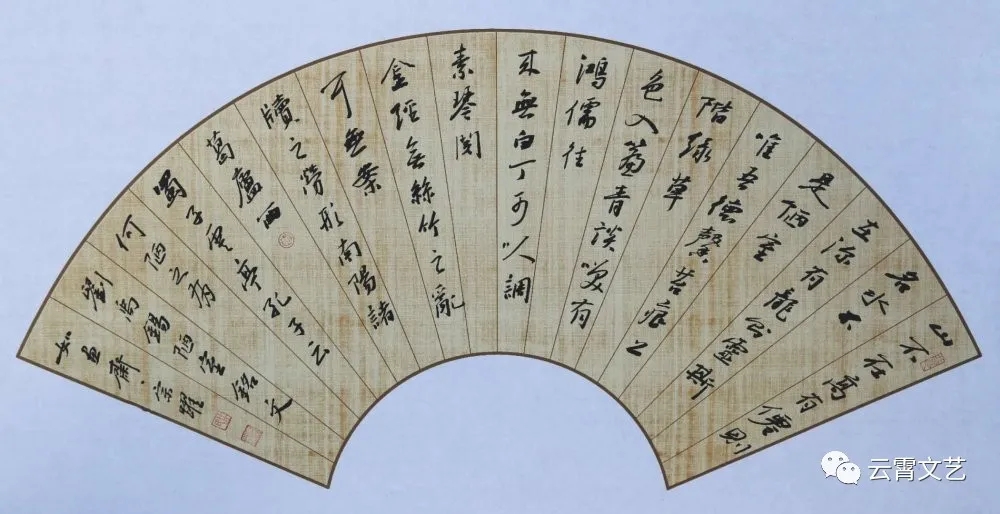 山不在高有僊則
名水不
在深有龍則靈斯
是陋室
唯吾德馨苔痕上
階緑草
色入簾青談笑有
鴻儒往
来無白丁可以調
素琴閲
金經無絲竹之亂
耳無案
牘之勞形南陽諸
葛廬西
蜀子雲亭孔子云
何陋之有
劉禹錫陋室銘文
如画齋宗躍
云霄文艺